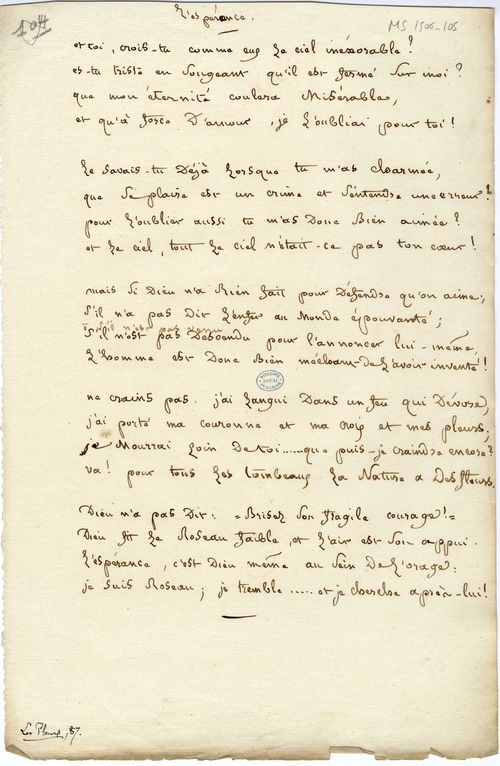 104
MS 1506-105
L'espérance.
et toi, crois-tu comme eux le ciel inéxorable ?
es-tu triste en songeant qu'il est fermé sur moi ?
que mon éternité coulera misérable,
et qu'à force d'amour, je l'oubliai pour toi !
le savais-tu déjà lorsque tu m'as charmée,
que se plaire est un crime et s'entendre une erreur ?
pour l'oublier aussi tu m'as donc bien aimée ?
et le ciel, tout le ciel n'était-ce pas ton cœur !
mais si Dieu n'a rien fait pour défendre qu'on aime ;
s'il n'a pas dit l'enfer au monde épouvanté ;
s'il n'est pas venu
s'il n'est pas descendu pour l'annoncer lui-même,
l'homme est donc bien méchant de l'avoir inventé !
ne crains pas. j'ai langui dans un feu qui dévore,
j'ai porté ma couronne et ma croix et mes pleurs ;
je mourrai loin de toi......que puis-je craindre encore ?
va ! pour tous les tombeaux la nature a des fleurs.
Dieu n'a pas dit : « Brisez son fragile courage ! »
Dieu fit le roseau faible, et l'air est son appui.
l'espérance, c'est Dieu même au sein de l'orage :
je suis roseau ; je tremble ..... et je cherche après-lui !
Les Pleurs, 87.